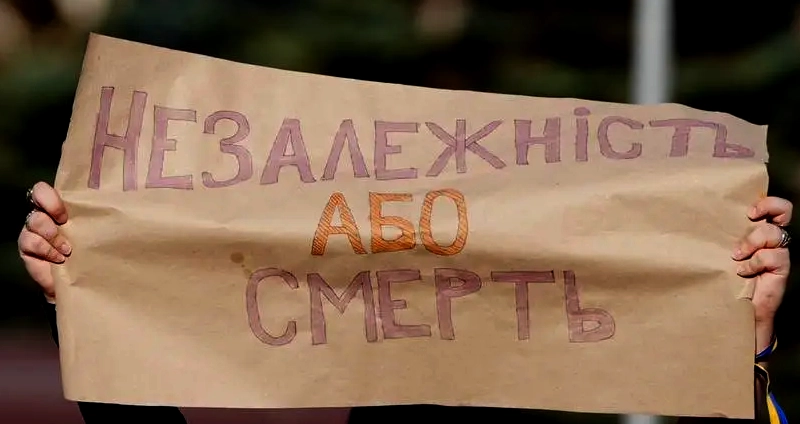 НЕЗАЛЕЖНІСТЬ
АБО
СМЕРТЬ